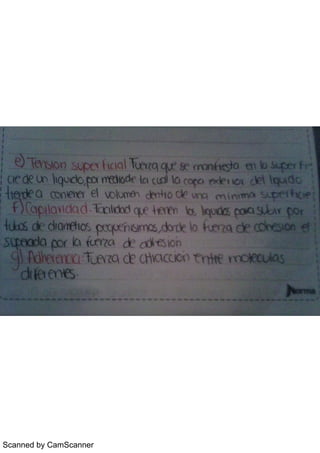 e) Tension superficial Fuerza que se manifiesta en la superfi-
cie de un liquido, por medio de la cual la capa exterior del liquido
tiende a contener el volumen dentro de una minima superficie.
f) Capilaridad. Facilidad que tienen los liquidos para subir por
tubos de diametros pequeñisimos, donde la fuerza de cohesion es
superada por la fuerza de adhesion
g) Adherencia: Fuerza de atraccion entre moleculas
diferentes.
Norma
Scanned by CamScanner